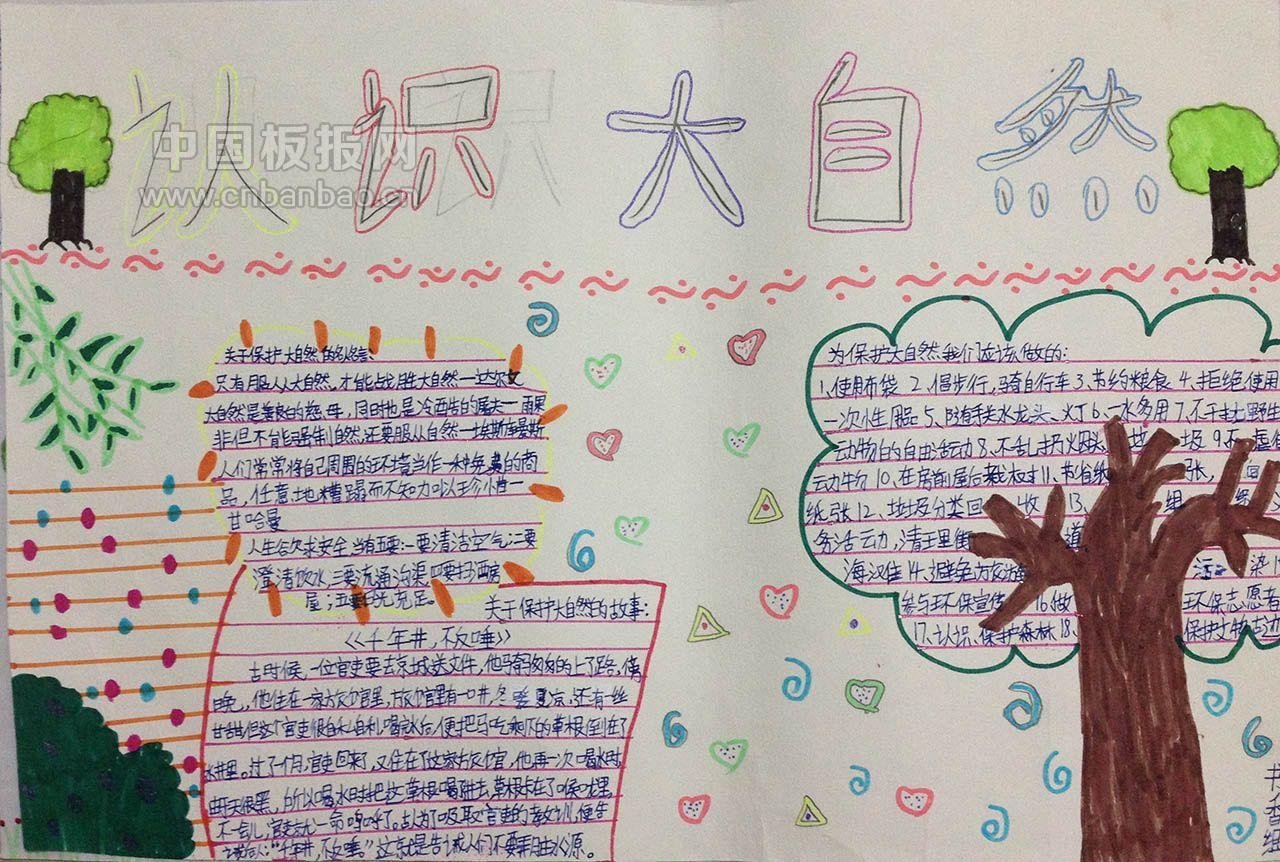 认识大自然
中国板报网
www.cnbanbao.cn
关于保护大自然的名言:
只有服从大自然,才能战胜大自然—达尔文
大自然是善良的慈母,同时也是冷酷的屠夫—雨果
非但不能强制自然,还要服从自然—埃斯库罗斯
人们常常将自己周围的环境当作一种免费的商
品,任意地糟蹋而不知加以珍惜—
甘哈曼
人生欲求安全,当有五要:一要清洁空气;二要
澄清饮水;三要流通沟渠;四要扫洒房
屋;五 日光充足。
关于保护大自然的故事:
《千年井,不反唾》
古时候,一位官吏要去京城送文件,他骑马匆匆的上了路,傍
晚,他住在一家旅馆里,旅馆里有一口井,冬暖夏凉,还有一丝
甘甜但这个官吏很自私自利喝完水后,便把马吃剩下的草根倒在了
水井里。过了一个月,官吏回来了,又住在了这家旅馆,他再一次喝水时,
由于天很黑,所以喝水时把这草根喝进去,草根卡在了喉咙里,
不一会儿,官吏就一命呜呼了。后人为了吸取官吏的教训,便告
诫后人:“千年井,不反唾。”这就是告诫人们不要弄脏水源。
为保护大自然,我们应该做的:
1、使用布袋 2、倡步行,骑自行车 3、节约粮食 4、拒绝使用
一次性用品 5、随手关水龙头、灯 6、一水多用 7、不干扰野生
动物的自由活动 8、不乱扔烟头 垃圾 9、不 虐
动物 10、在房前屋后栽树 11、节省纸张,回
纸张 12、垃圾分类回收 13、组
务活动,清王里街道
海汉准 14、避免旅游污染
参与环保宣传 16做 环保志愿者
17、认识、保护森林 18、 保护文物古迹